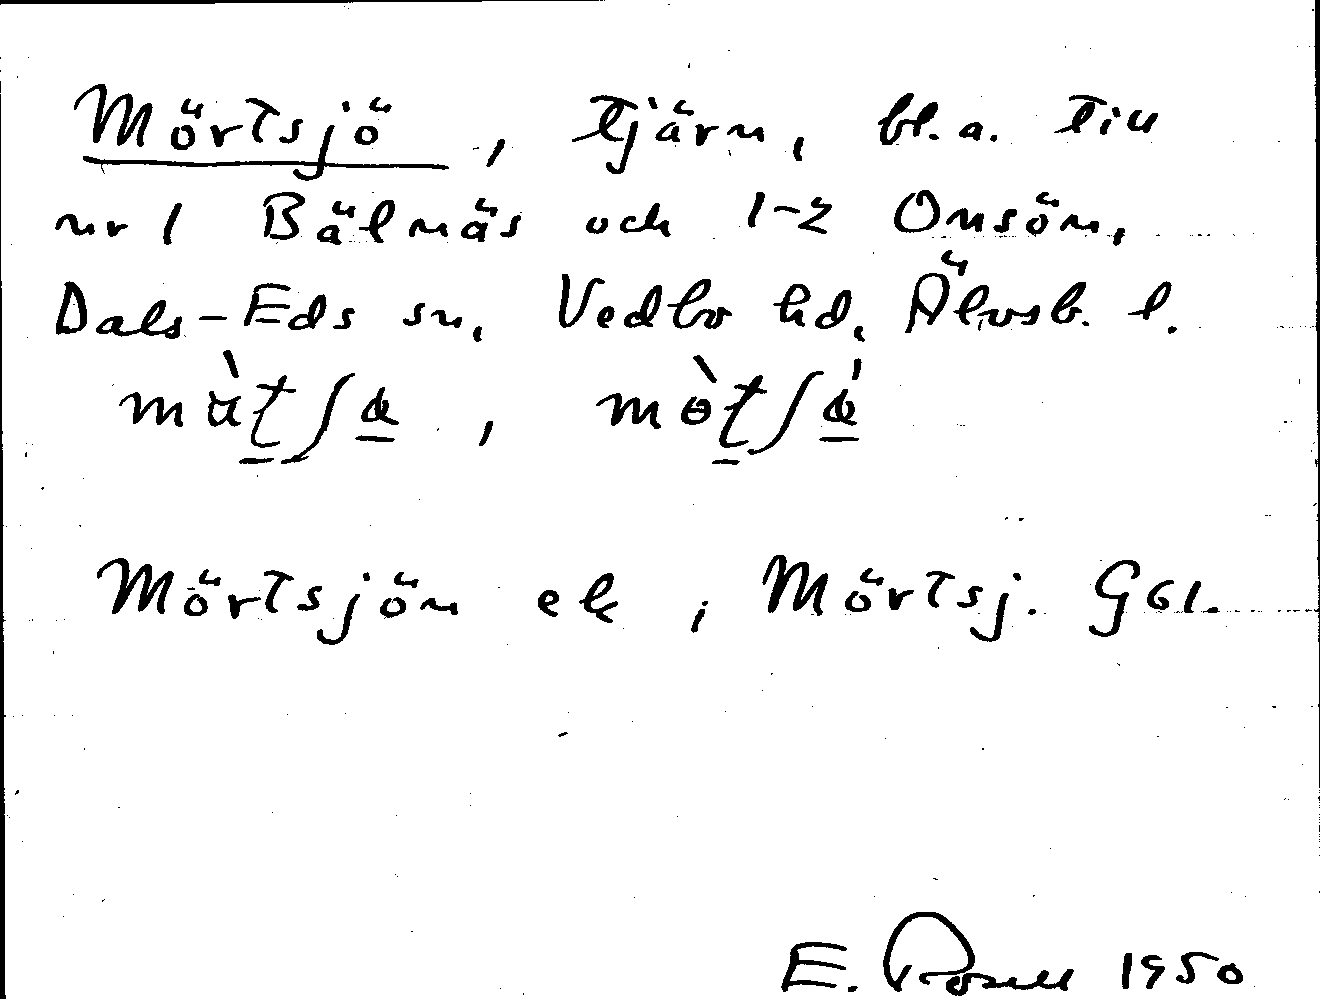 Mörtsjö, tjärn, bl.a. till
nr 1 Bälnäs och 1-2 Onsön,
Dals-Eds sn, Vedbo hd, Älvsb. l.
Mörtsjön ek, Mörtsj. G61.
E. Rosell 1950